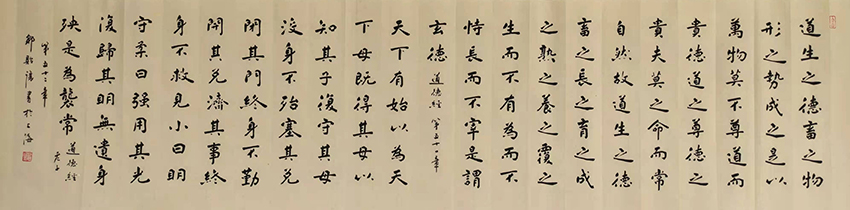 道生之德畜之物
形之势成之是以
萬物莫不尊道而
貴德道之尊德之
貴夫莫之命而常
自然故道生之德
畜之長之育之成
之熟之養之覆之
生而不有為而不
恃長而不宰是謂
玄德 道德經 第五十一章
天下有始以為天
下母既得其母以
知其子復守其母
没身不殆塞其兑
閉其門終身不勤
開其兑濟其事終
身不救見小曰明
守柔曰强用其光
復歸其明無遺身
殃是為襲常 道德經
第五十二章
書於上海